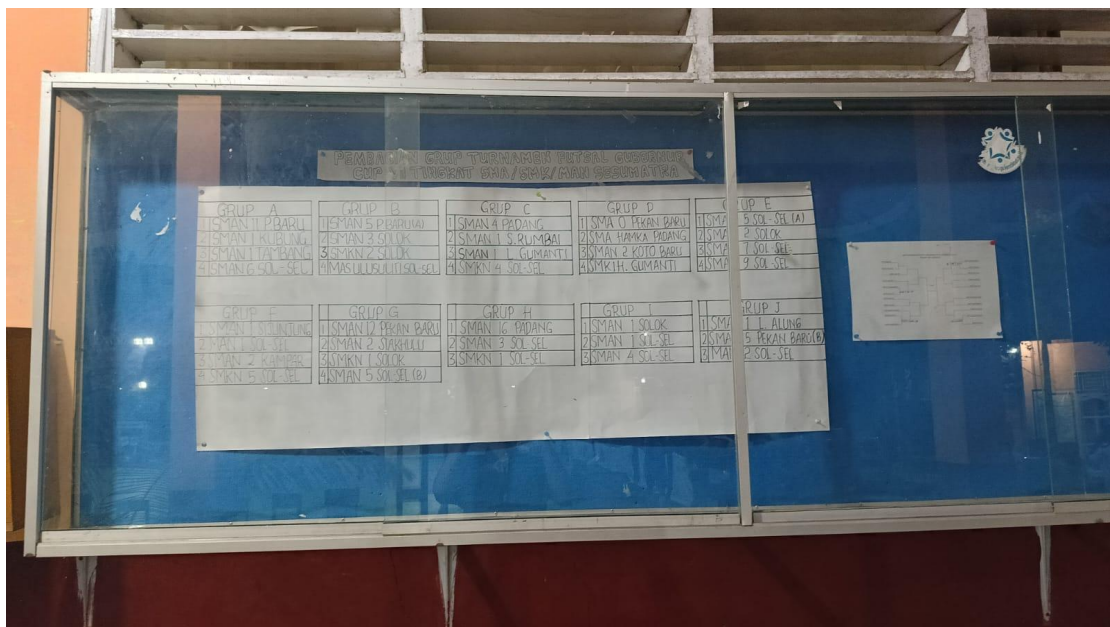 PEMBAGIAN GRUP TURNAMEN FUTSAL
CUP TINGKAT SMA/SMK/MAN SESUMATRA
GRUP A
1 SMAN 11 P.BARU
2 SMAN 1 KUBUNG
3 SMAN 1 TAMBANG
4 SMAN 6 SOL-SEL
GRUP B
1 SMAN 5 P.BARU (A)
2 SMAN 3 SOLOK
3 SMKN 2 SOLOK
4 MAS ULUSULITI SOL-SEL
GRUP C
1 SMAN 4 PADANG
2 SMAN 1 S.RUMBAI
3 SMAN 1 L. GUMANTI
4 SMKN 4 SOL-SEL
GRUP D
1 SMA O PEKAN BARU
2 SMA HAMKA PADANG
3 SMAN 2 KOTO BARU
4 SMK 1 H. GUMANTI
GRUP E
1 SMA 5 SOL-SEL (A)
2 SMA 2 SOLOK
3 SMA 7 SOL-SEL
4 SMA 9 SOL-SEL
GRUP F
1 SMAN 1 SIJUNJUNG
SMAN 1 SOL-SEL
3 SMAN 2 KAMPAR
SMKN 5 SOL-SEL
GRUP G
1 SMAN 12 PEKAN BARU
2 SMAN 2 SIAKHULU
3 SMKN 1 SOLOK
4 SMAN 5 SOL-SEL (B)
GRUP H
1 SMAN 16 PADANG
2 SMAN 3 SOL-SEL
3 SMKN 1 SOL-SEL
GRUP I
1 SMAN 1 SOLOK
2 SMAN 1 SOL-SEL
3 SMAN 4 SOL-SEL
GRUP J
1 SMA 1 L. ALUNG
2 SMA 5 PEKAN BARU (B)
3 MA 2 SOL-SEL